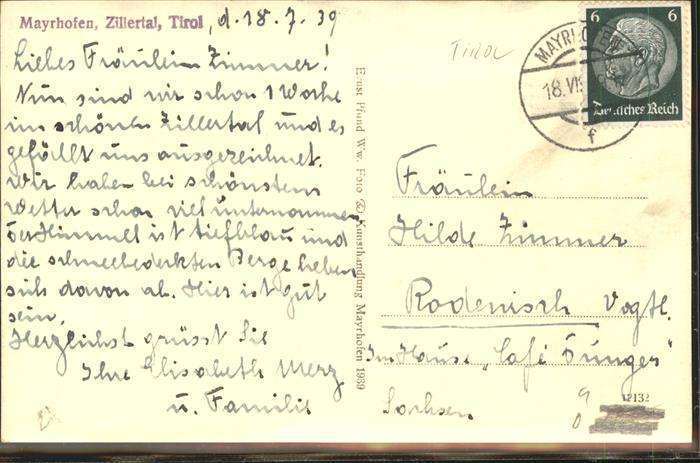 Mayrhofen, Zillertal, Tirol, d. 18. 7. 39
Liebes Fräulein Zimmer!
Nun sind wir schon 1 Woche
im schönen Zillertal und es
gefällt uns ausgezeichnet.
Wir haben bei schönstem
Wetter schon viel unternommen
Der Himmel ist tiefblau und
die schneebedeckten Berge heben
sich davon ab. Hier ist gut
sein.
Herzlichst grüsst Sie
Ihre Elisabeth Merz
u. Familie
Ernst Pfund Ww. Foto & Kunsthandlung Mayrhofen 1939
TIROL
MAYRHOFEN
18. VII
f
6 6
Deutsches Reich
Fräulein
Hilde Zimmer
Rodewisch Vogtl.
Im Hause "Café Dunger"
Sachsen
12132